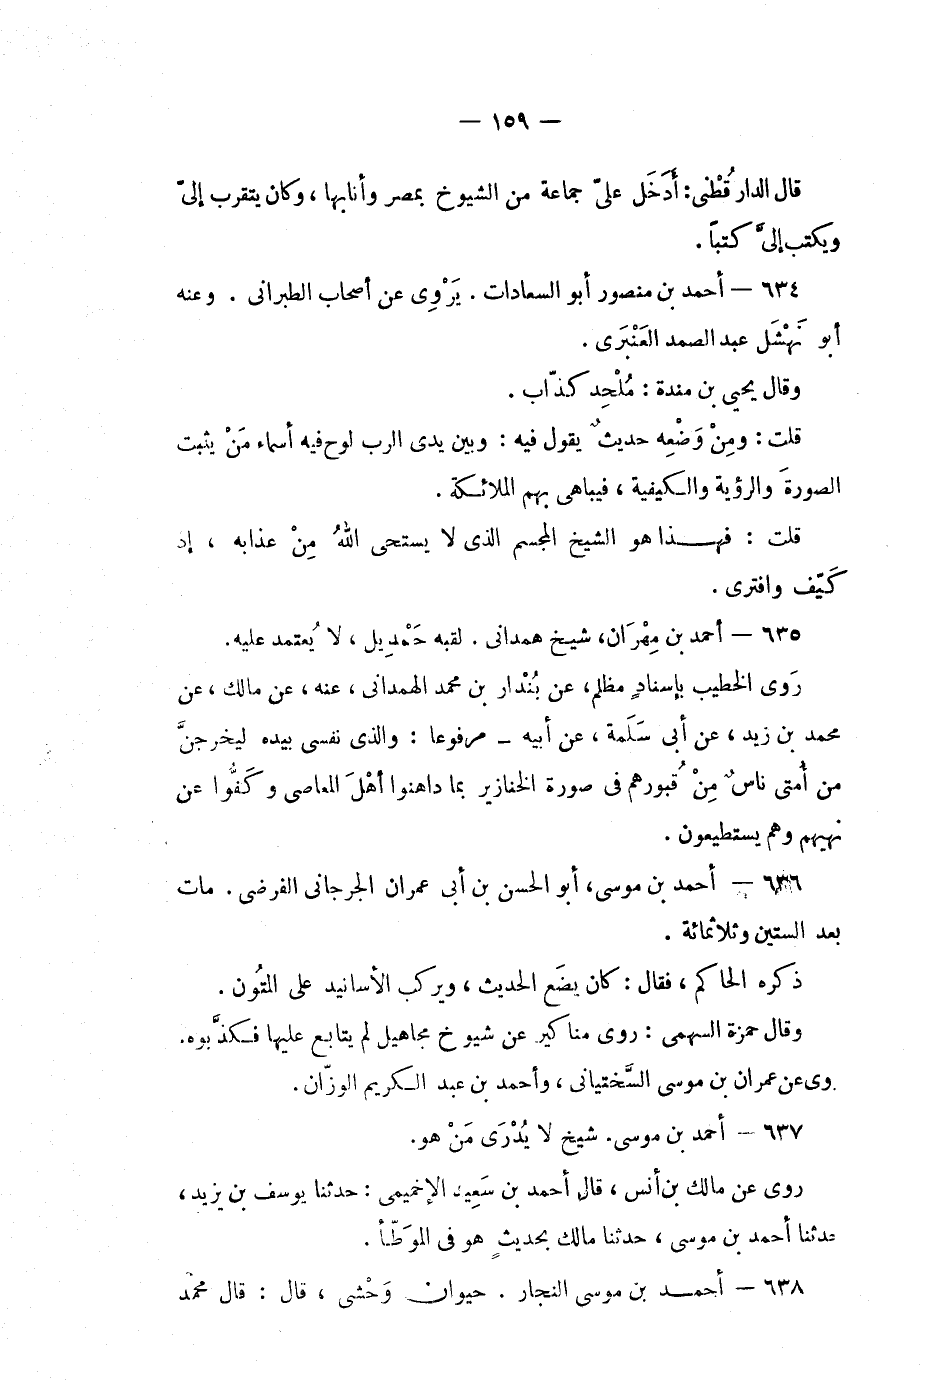 — ١٥٩ —
قال الدارقُطْنى: أَدْخَل علىّ جماعة من الشيوخ بمصر وأنابها، وكان يتقرب إلىّ
ويكتب إلىَّ كتباً.
٦٣٤ — أحمد بن منصور أبو السعادات. يَرْوِى عن أصحاب الطبرانى. وعنه
أبو نَهْشَل عبد الصمد العَنْبَرى.
وقال يحيى بن مندة: مُلْحِد كذّاب.
قلت: ومِنْ وَضْعِه حديثٌ يقول فيه: وبين يدى الرب لوح فيه أسماء مَنْ يثبت
الصورةَ والرؤية والكيفية، فيباهى بهم الملائكة.
قلت: فهذا هو الشيخ المجسم الذى لا يستحى اللهُ مِنْ عذابه، إذ
كَيّف وافترى.
٦٣٥ — أحمد بن مِهْرَان، شيخ همدانى. لقبه حَمْدِيل، لا يُعتمد عليه.
رَوى الخطيب بإسنادٍ مظلم، عن بُنْدار بن محمد الهمدانى، عنه، عن مالك، عن
محمد بن زيد، عن أبى سَلَمة، عن أبيه – مرفوعا: والذى نفسى بيده ليخرجنَّ
من أُمتى ناسٌ مِنْ قُبورهم فى صورة الخنازير بما داهنوا أهْلَ المعاصى وكَفُّوا عن
نهيهم وهم يستطيعون.
٦٣٦ — أحمد بن موسى، أبو الحسن بن أبى عمران الجرجانى الفرضى. مات
بعد الستين وثلاثمائة.
ذكره الحاكم، فقال: كان يضَع الحديث، ويركب الأسانيد على المتُون.
وقال حمزة السهمى: روى مناكير عن شيوخ مجاهيل لم يتابع عليها فكذَّبوه.
روى عن عمران بن موسى السَّختيانى، وأحمد بن عبد الكريم الوزّان.
٦٣٧ — أحمد بن موسى. شيخ لا يُدْرَى مَنْ هو.
روى عن مالك بن أنس، قال أحمد بن سَعِيد الإخميمى: حدثنا يوسف بن يزيد،
حدثنا أحمد بن موسى، حدثنا مالك بحديثٍ هو فى الموَطّأ.
٦٣٨ — أحمد بن موسى النجار. حيوان وَحْشى، قال: قال محمّد